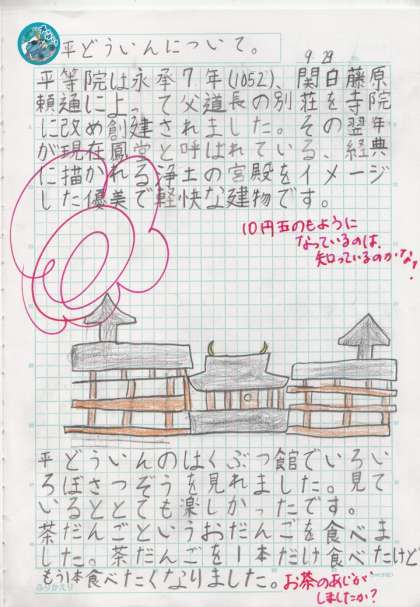 平どういんについて。
9 29
平等院は永承7年(1052)、関白藤原
頼通によって父道長の別荘を寺院
に改め創建されました。その翌年
が現在鳳堂と呼ばれている、経典
に描かれる浄土の宮殿をイメージ
した優美で軽快な建物です。
10円玉のもように
なっているのは、
知っているのかな?
平どういんのはくぶつ館でいろい
ろぼさつぞうを見れました。見て
いるととても楽しかったです。
茶だんごというおだんごを食べま
した。茶だんごを1本だけ食べたけど
もう1本食べたくなりました。
お茶のあじが
しましたか?